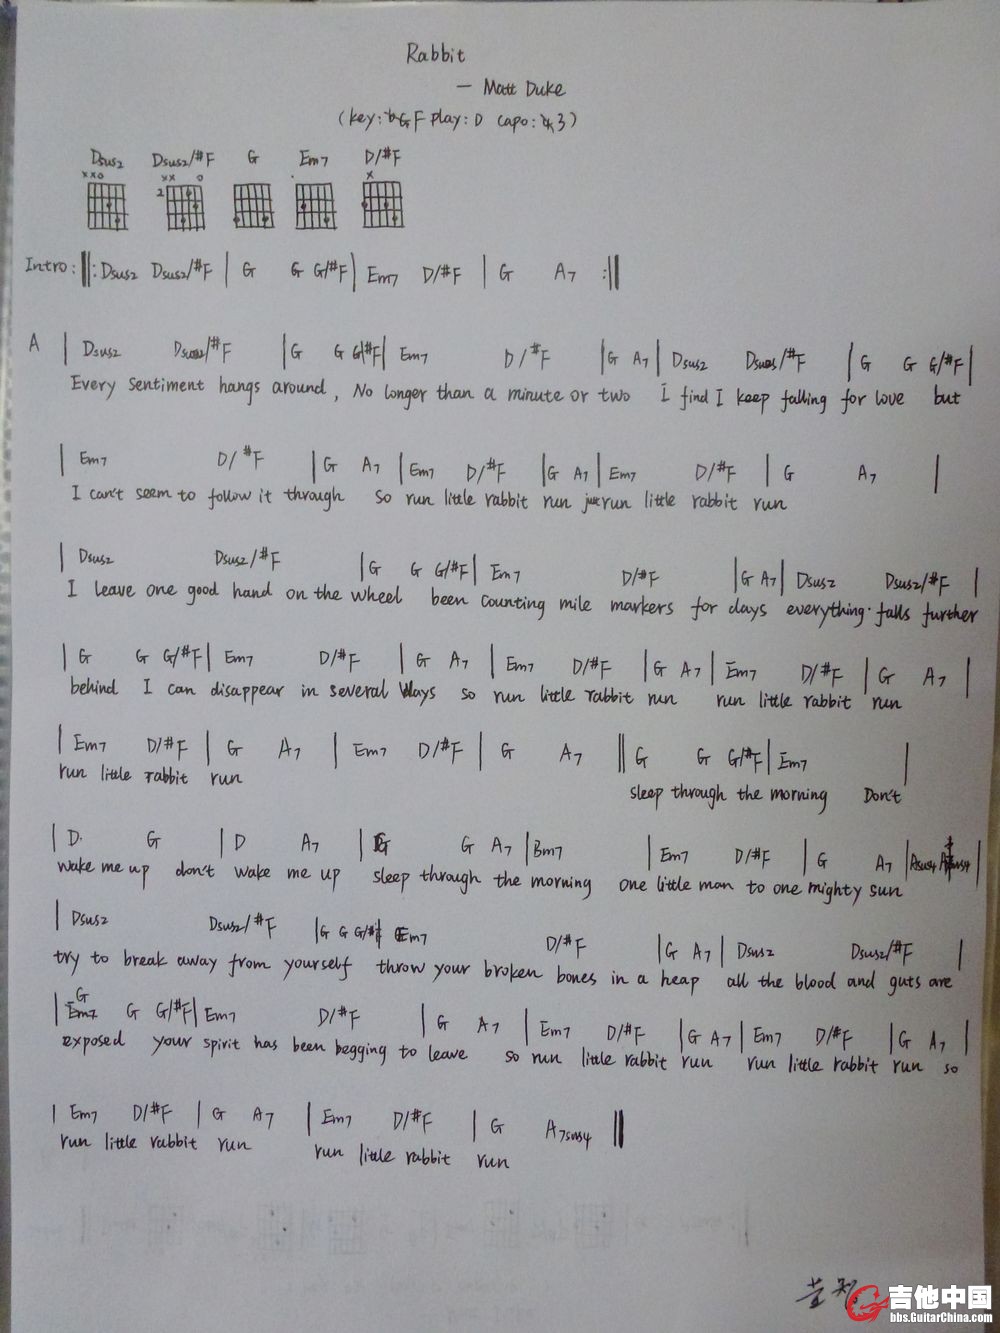 Rabbit
— Matt Duke
(key: F play: D capo: 3)
Dsus2 Dsus2/#F G Em7 D/#F
xxo xx o x
2
Intro: ‖: Dsus2 Dsus2/#F | G G G/#F | Em7 D/#F | G A7 :‖
A | Dsus2 Dsus2/#F | G G G/#F | Em7 D/#F | G A7 | Dsus2 Dsus2/#F | G G G/#F |
Every sentiment hangs around, No longer than a minute or two I find I keep falling for love but
| Em7 D/#F | G A7 | Em7 D/#F | G A7 | Em7 D/#F | G A7 |
I can't seem to follow it through so run little rabbit run just run little rabbit run
| Dsus2 Dsus2/#F | G G G/#F | Em7 D/#F | G A7 | Dsus2 Dsus2/#F |
I leave one good hand on the wheel been counting mile markers for days everything falls further
| G G G/#F | Em7 D/#F | G A7 | Em7 D/#F | G A7 | Em7 D/#F | G A7 |
behind I can disappear in several ways so run little rabbit run run little rabbit run
| Em7 D/#F | G A7 | Em7 D/#F | G A7 ‖ G G G/#F | Em7 |
run little rabbit run sleep through the morning Don't
| D G | D A7 | G G A7 | Bm7 | Em7 D/#F | G A7 | Asus4 |
wake me up don't wake me up sleep through the morning one little man to one mighty sun
| Dsus2 Dsus2/#F | G G G/# | Em7 D/#F | G A7 | Dsus2 Dsus2/#F |
try to break away from yourself throw your broken bones in a heap all the blood and guts are
| G G G/#F | Em7 D/#F | G A7 | Em7 D/#F | G A7 | Em7 D/#F | G A7 |
exposed your spirit has been begging to leave so run little rabbit run run little rabbit run so
| Em7 D/#F | G A7 | Em7 D/#F | G A7sus4 ‖
run little rabbit run run little rabbit run
吉他中国
bbs.GuitarChina.com